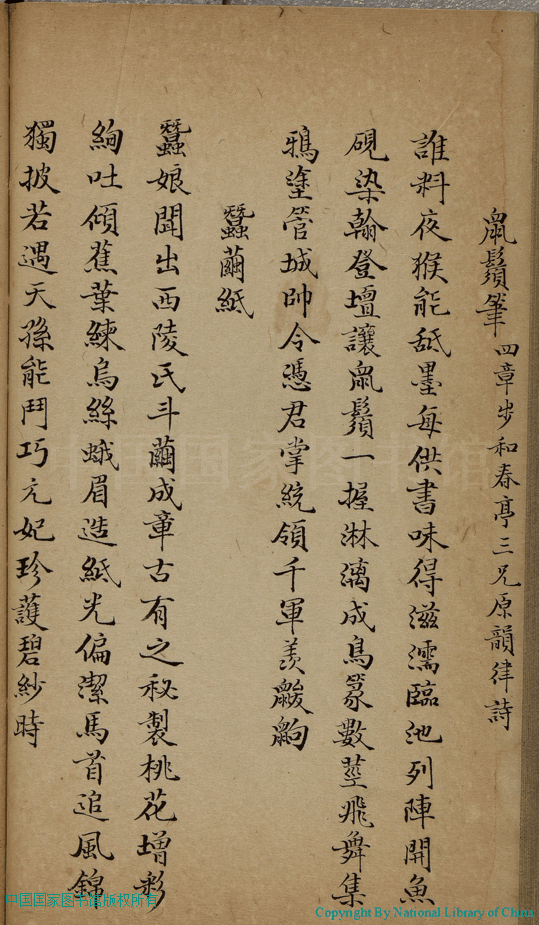 鼠鬚筆 四章步和春亭三兄原韻律詩
誰料夜猴能舐墨每供書味得滋濡臨池列陣開魚
硯染翰登壇讓鼠鬚一握淋漓成鳥篆數莖飛舞集
鴉塗管城帥令憑君掌統領千軍羨鼣䶂
蠶繭紙
蠶娘聞出西陵氏斗繭成章古有之秘製桃花增彩
絢吐傾蕉葉練烏絲蛾眉造紙光偏潔馬首追風錦
獨披若遇天孫能鬥巧元妃珍護碧紗時
中国国家图书馆
中国国家图书馆版权所有
Copyright By National Library of China